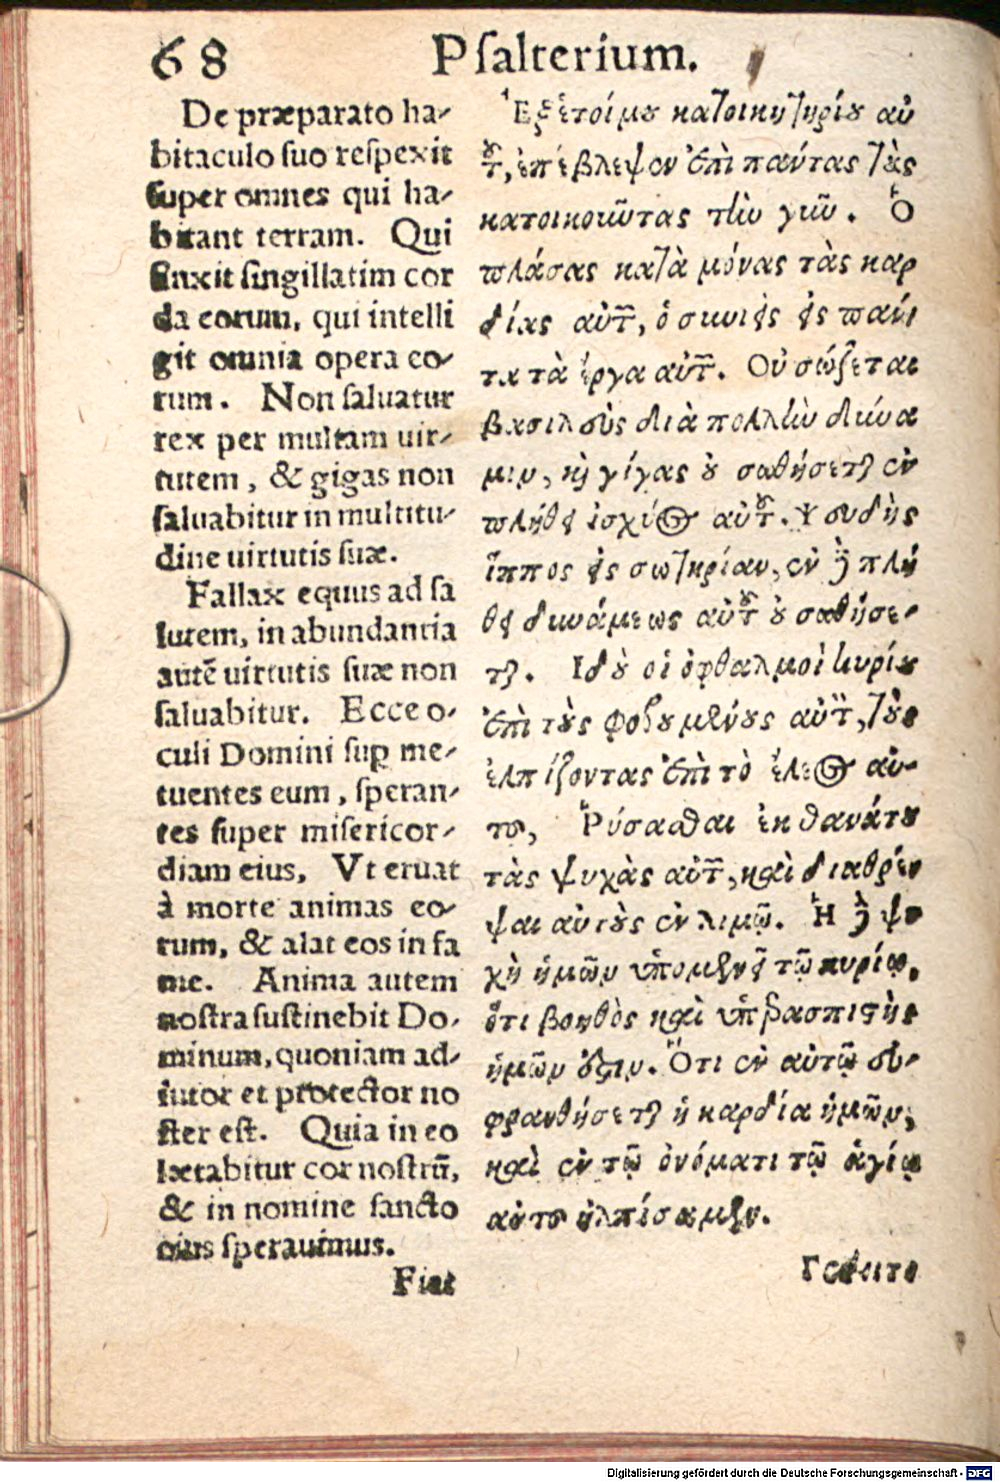 68 Psalterium.
De præparato ha-
bitaculo suo respexit
super omnes qui ha-
bitant terram. Qui
finxit singillatim cor
da eorum, qui intelli
git omnia opera eo-
rum. Non saluatur
rex per multam uir-
tutem, & gigas non
saluabitur in multitu-
dine uirtutis suæ.
Fallax equus ad sa
lutem, in abundantia
autē uirtutis suæ non
saluabitur. Ecce o-
culi Domini sup me-
tuentes eum, speran-
tes super misericor-
diam eius, Vt eruat
à morte animas eo-
rum, & alat eos in fa
me. Anima autem
nostra sustinebit Do-
minum, quoniam ad-
iutor et protector no
ster est. Quia in eo
lætabitur cor nostrū,
& in nomine sancto
eius sperauimus.
Fiat
Ἐξ ἑτοίμου κατοικητηρίου αὐ
τοῦ, ἐπέβλεψεν ἐπὶ πάντας τὰς
κατοικοιῶτας τὴν γῆν. Ὁ
πλάσας κατὰ μόνας τὰς καρ
δίας αὐτῶν, ὁ συνιεὶς εἰς πάν
τα τὰ ἔργα αὐτῶν. Οὐ σώζεται
βασιλεὺς διὰ πολλὴν δύνα
μιν, καὶ γίγας οὐ σωθήσεται ἐν
πλήθει ἰσχύος αὐτοῦ. Ψευδὴς
ἵππος εἰς σωτηρίαν, ἐν δὲ πλή
θει δυνάμεως αὐτοῦ οὐ σωθήσε-
ται. Ἰδοὺ οἱ ὀφθαλμοὶ κυρίου
ἐπὶ τοὺς φοβουμένους αὐτὸν, τοὺς
ἐλπίζοντας ἐπὶ τὸ ἔλεος αὐ-
τοῦ, Ῥύσασθαι ἐκ θανάτου
τὰς ψυχὰς αὐτῶν, καὶ διαθρέ
ψαι αὐτοὺς ἐν λιμῷ. Ἡ δὲ ψυ
χὴ ἡμῶν ὑπομενεῖ τῷ κυρίῳ,
ὅτι βοηθὸς καὶ ὑπερασπιστὴς
ἡμῶν ἐστιν. Ὅτι ἐν αὐτῷ εὐ-
φρανθήσεται ἡ καρδία ἡμῶν,
καὶ ἐν τῷ ὀνόματι τῷ ἁγίῳ
αὐτοῦ ἠλπίσαμεν.
Γένοιτο
Digitalisierung gefördert durch die Deutsche Forschungsgemeinschaft - DFG